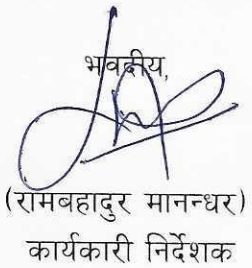 भवदीय,
(रामबहादुर मानन्धर)
कार्यकारी निर्देशक